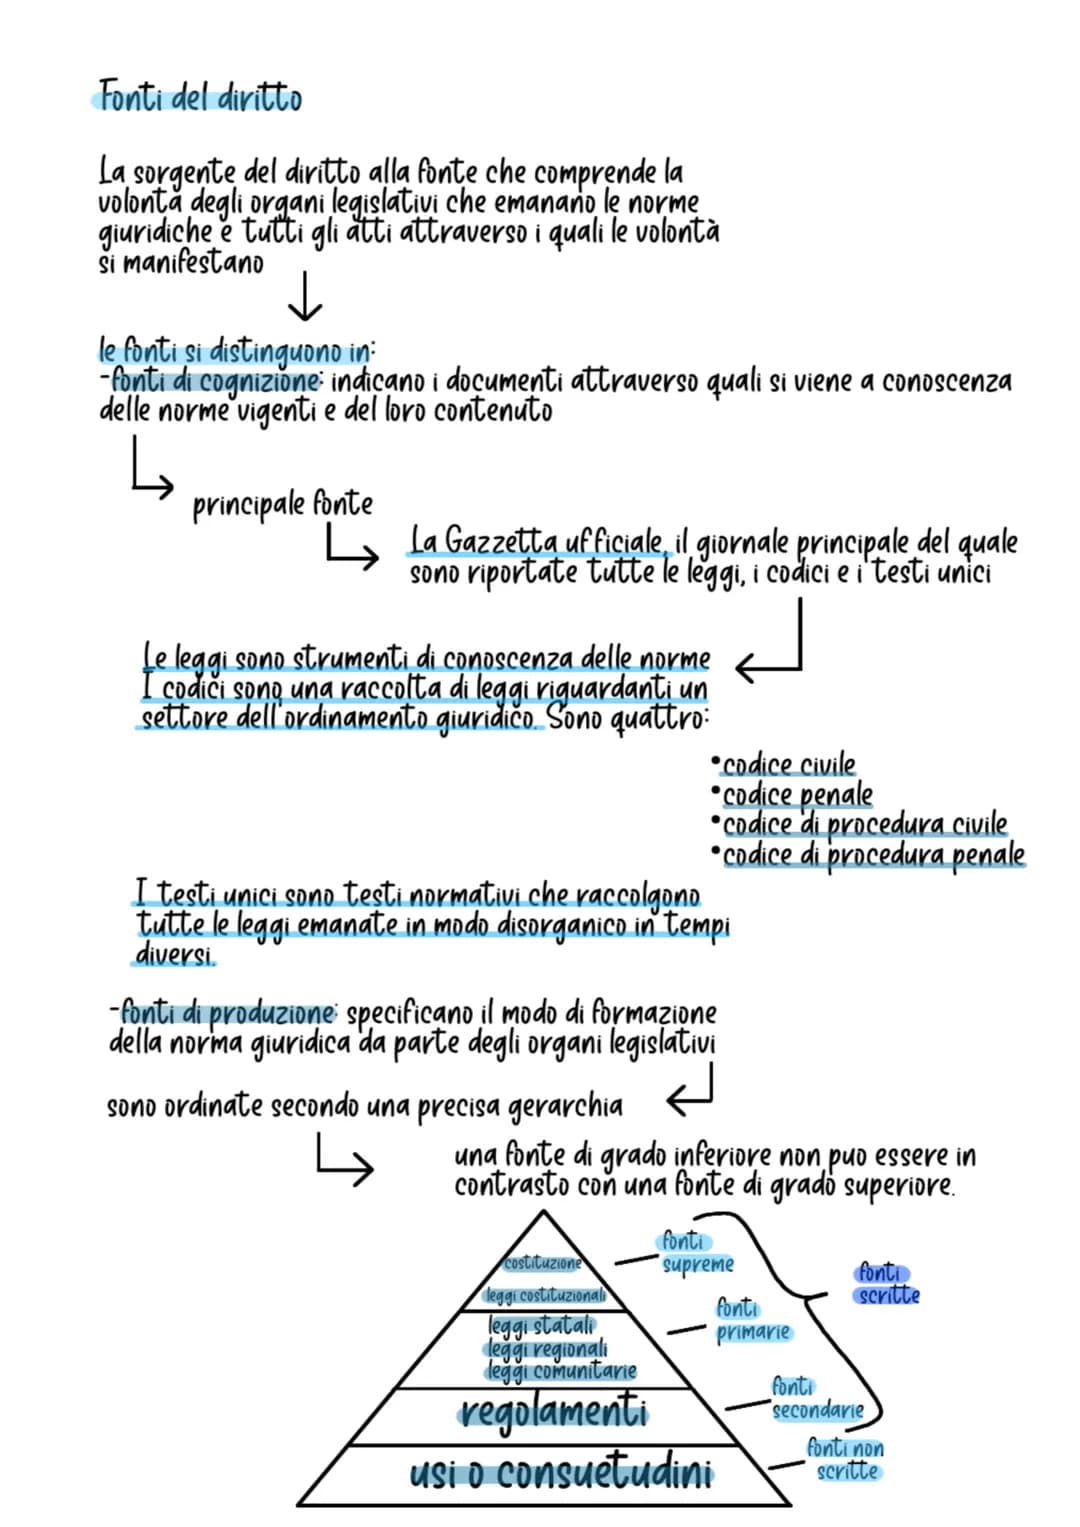 Fonti del diritto
La sorgente del diritto alla fonte che comprende la
volontà degli organi legislativi che emanano le norme
giuridiche e tutti gli atti attraverso i quali le volontà
si manifestano
le fonti si distinguono in:
-fonti di cognizione: indicano i documenti attraverso quali si viene a conoscenza
delle norme vigenti e del loro contenuto
principale fonte
La Gazzetta ufficiale, il giornale principale del quale
sono riportate tutte le leggi, i codici e i testi unici
Le leggi sono strumenti di conoscenza delle norme
I codici sono una raccolta di leggi riguardanti un
settore dell'ordinamento giuridico. Sono quattro:
•codice civile
•codice penale
•codice di procedura civile
•codice di procedura penale
I testi unici sono testi normativi che raccolgono
tutte le leggi emanate in modo disorganico in tempi
diversi.
-fonti di produzione: specificano il modo di formazione
della norma giuridica da parte degli organi legislativi
sono ordinate secondo una precisa gerarchia
una fonte di grado inferiore non può essere in
contrasto con una fonte di grado superiore.
costituzione
leggi costituzionali
fonti
supreme
leggi statali
leggi regionali
leggi comunitarie
fonti
primarie
regolamenti
fonti
secondarie
fonti
scritte
usi o consuetudini
fonti non
scritte